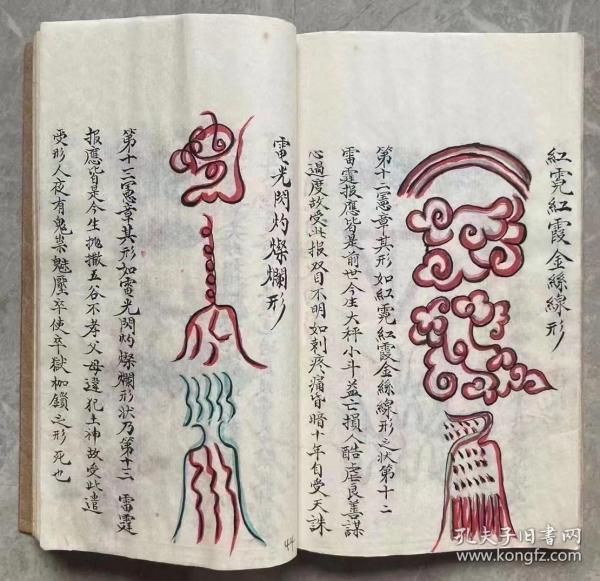 紅霓紅霞金絲線形
第十二憲章其形如紅霓紅霞金絲線形之状第十二
雷霆报應皆是前世今生大秤小斗益亡損人酷虐良善謀
心過度故受此报双目不明如刺疼痛昏暗十年自受天誅
電光閃灼燦爛形
第十三憲章其形如電光閃灼燦爛形状乃第十三 雷霆
报應皆是今生抛撒五谷不孝父母違犯土神故受此遣
受形人夜有鬼祟魅壓卒使卒獄枷鎖之形死也
44
孔夫子旧书网
www.kongfz.com